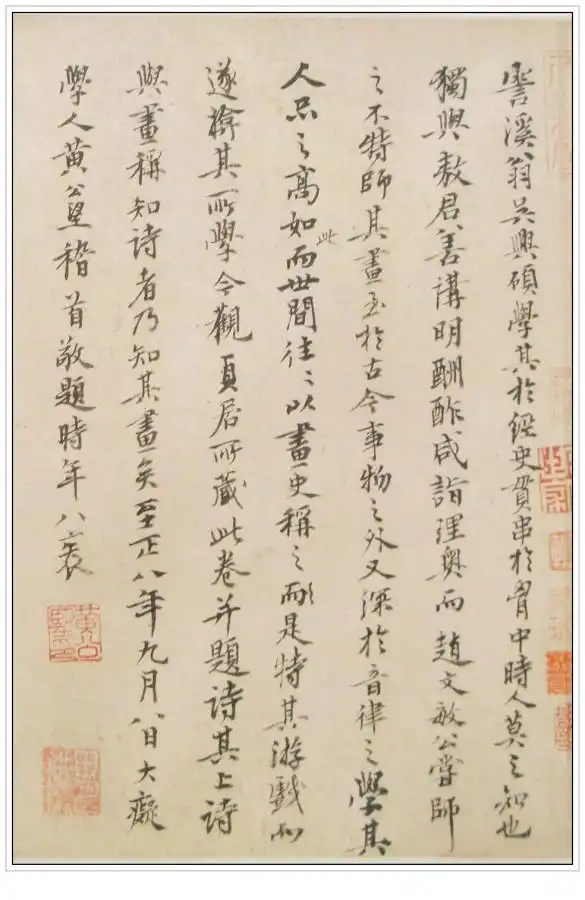 霅溪翁吳興碩學其於經史貫串於胷中時人莫之知也
獨與敖君善講明酬酢咸詣理奧而趙文敏公嘗師
之不特師其畫至於古今事物之外又深於音律之學其
人品之高如此而世間往〻以畫史稱之是特其游戲而
遂揜其所學今觀貞居所藏此卷并題詩其上詩
與畫稱知詩者乃知其畫矣至正八年九月八日大癡
學人黃公望稽首敬題時年八袠